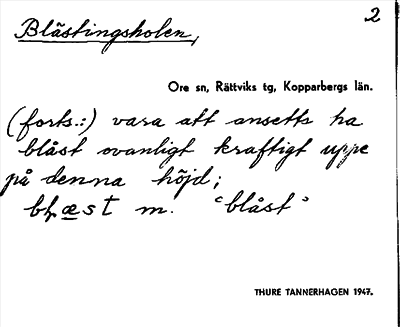 Blästingsholen,
2
Ore sn, Rättviks tg, Kopparbergs län.
(forts.:) vara att ansetts ha
blåst ovanligt kraftigt uppe
på denna höjd;
m. "blåst"
THURE TANNERHAGEN 1947.